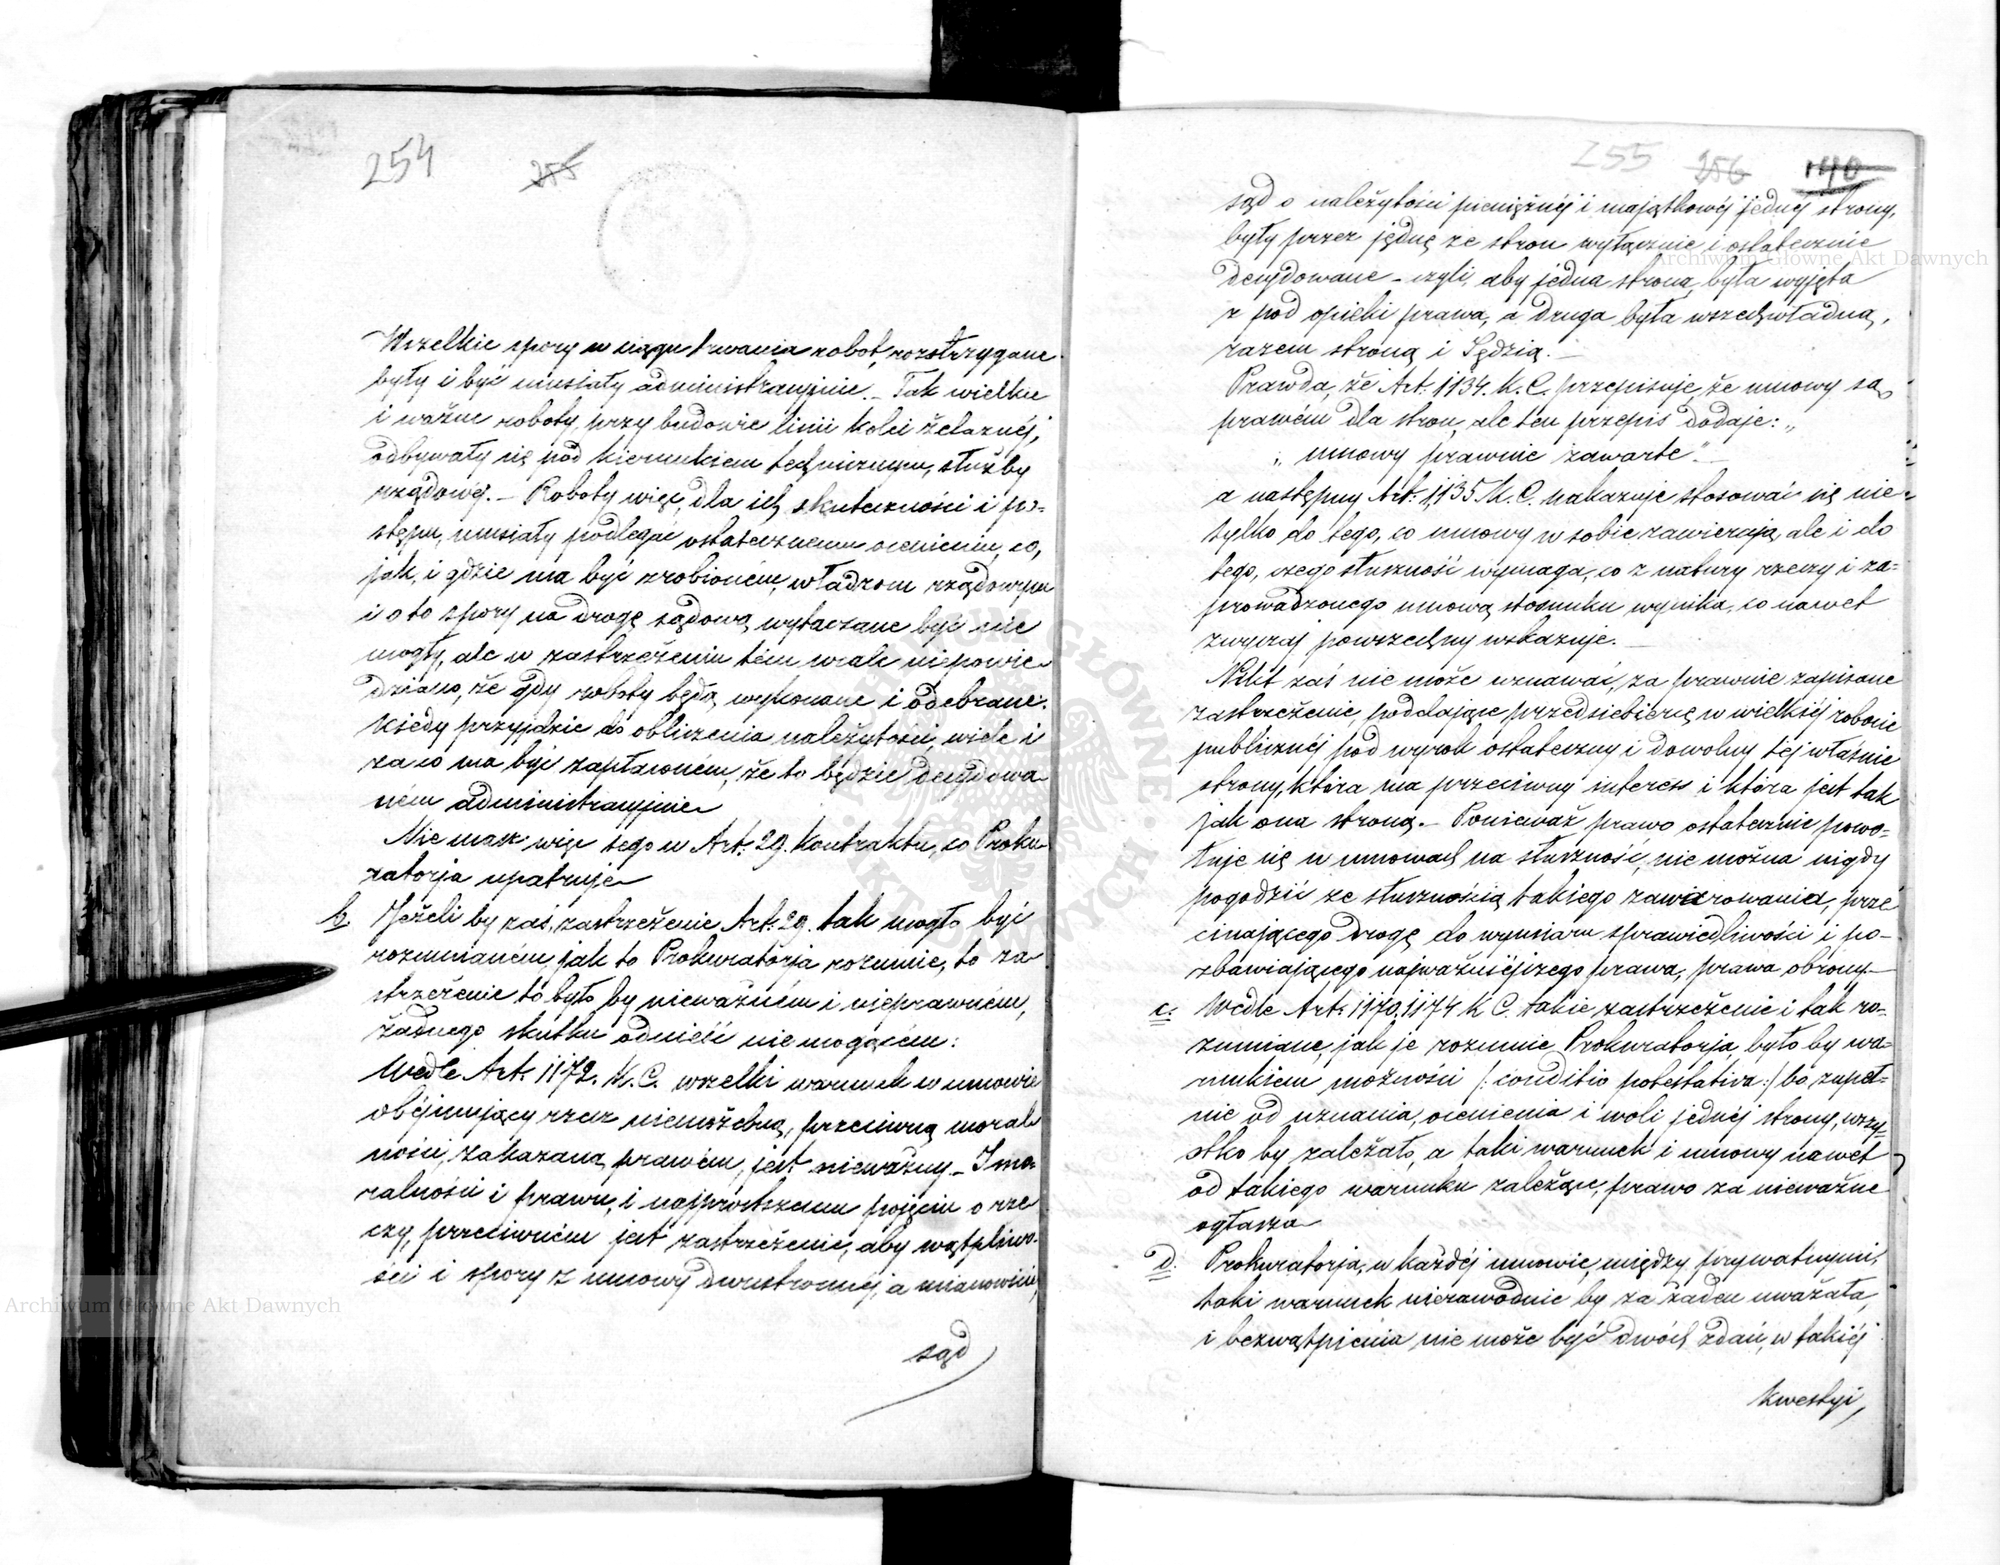 254 255
Wszelkie spory w ciągu trwania robot, rozstrzygane
były i być musiały administracyjnie. – Tak wielkie
i ważne roboty, przy budowie linii kolei żelaznéj,
odbywały się pod kierunkiem technicznym, służby
rządowéj. – Roboty więc, dla ich skuteczności i po=
stępu, musiały podlegać ostatecznemu ocenieniu, co,
jak, i gdzie ma być zrobioném, władzom rządowym
i o to spory na drogę sądową wytaczane być nie
mogły, ale w zastrzeżeniu tém wcale niepowie
dziano, że gdy roboty będą wykonane i odebrane.
kiedy przyjdzie do obliczenia należytości, wiele i
za co ma być zapłaconem, że to będzie decydowa
ném administracyjnie
Nie masz więc tego w Art: 29. Kontraktu, co Proku
ratorja upatruje
b. Jeżeli by zaś, zastrzeżenie Art: 29. tak mogło być
rozumianém, jak to Prokuratorja rozumie, to za
strzeżenie to było by nieważném i nieprawném,
żadnego skutku odnieść nie mogącém:
Wedle Art: 1172. K. C. wszelki warunek w umowie
obejmujący rzecz niemożebną, przeciwną moral
ności, zakazaną prawem, jest nieważny – I mo
ralności i prawu, i najprostszemu pojęciu o rze
czy, przeciwném jest zastrzeżenie, aby wątpliwo
ści i spory z umowy dwustronnéj, a mianowicie,
sąd
255 256 140
sąd o należytości pieniężnéj i majątkowéj jednéj strony,
były przez jędnę ze stron wyłącznie i ostatecznie
decydowane – czyli, aby jedna strona, była wyjęta
z pod opieki prawa, a druga była wszechwładną,
razem stroną i Sędzią. –
Prawda, że Art: 1134. K. C. przepisuje, że umowy są
prawém dla stron, ale ten przepis dodaje: „
„ umowy prawnie zawarte". –
a następny Art: 1135 K. C. nakazuje stosować się nie=
tylko do tego, co umowy w sobie zawierają, ale i do
tego, czego słuszność wymaga, co z natury rzeczy i za=
prowadzonego umową stosunku wynika, co nawet
zwyczaj powszechny wskazuje. –
Nikt zaś nie może uznawać, za prawnie zapisane
zastrzeżenie, poddające przedsiebiercę w wielkiéj robocie
publicznéj pod wyrok ostateczny i dowolny téj właśnie
strony, która ma przeciwny interess i która jest tak
jak ona stroną. – Ponieważ prawo ostatecznie powo=
łuje się w umowach na słuszność, nie można nigdy
pogodzić ze słusznością takiego zawarowania, prze
cinającego drogę do wymiaru sprawiedliwości i po=
zbawiającego najważniejszego prawa, prawa obrony –
c. Wedle Art: 1170, 1174 K C. takie zastrzeżenie i tak ro=
zumiane, jak je rozumie Prokuratorja, było by wa=
runkiem możności /: conditio potestativa :/ bo zupeł=
nie od uznania, ocenienia i woli jednéj strony, wszy=
stko by zależało, a taki warunek i umowy nawet
od takiego warunku zależące, prawo za nieważne
ogłasza
d. Prokuratorja, w każdéj umowie, między prywatnymi,
taki warunek niezawodnie by za żaden uważała,
i bezwątpienia nie może być dwóch zdań, w takiéj
kwestyi,
Archiwum Główne Akt Dawnych
Archiwum Główne Akt Dawnych